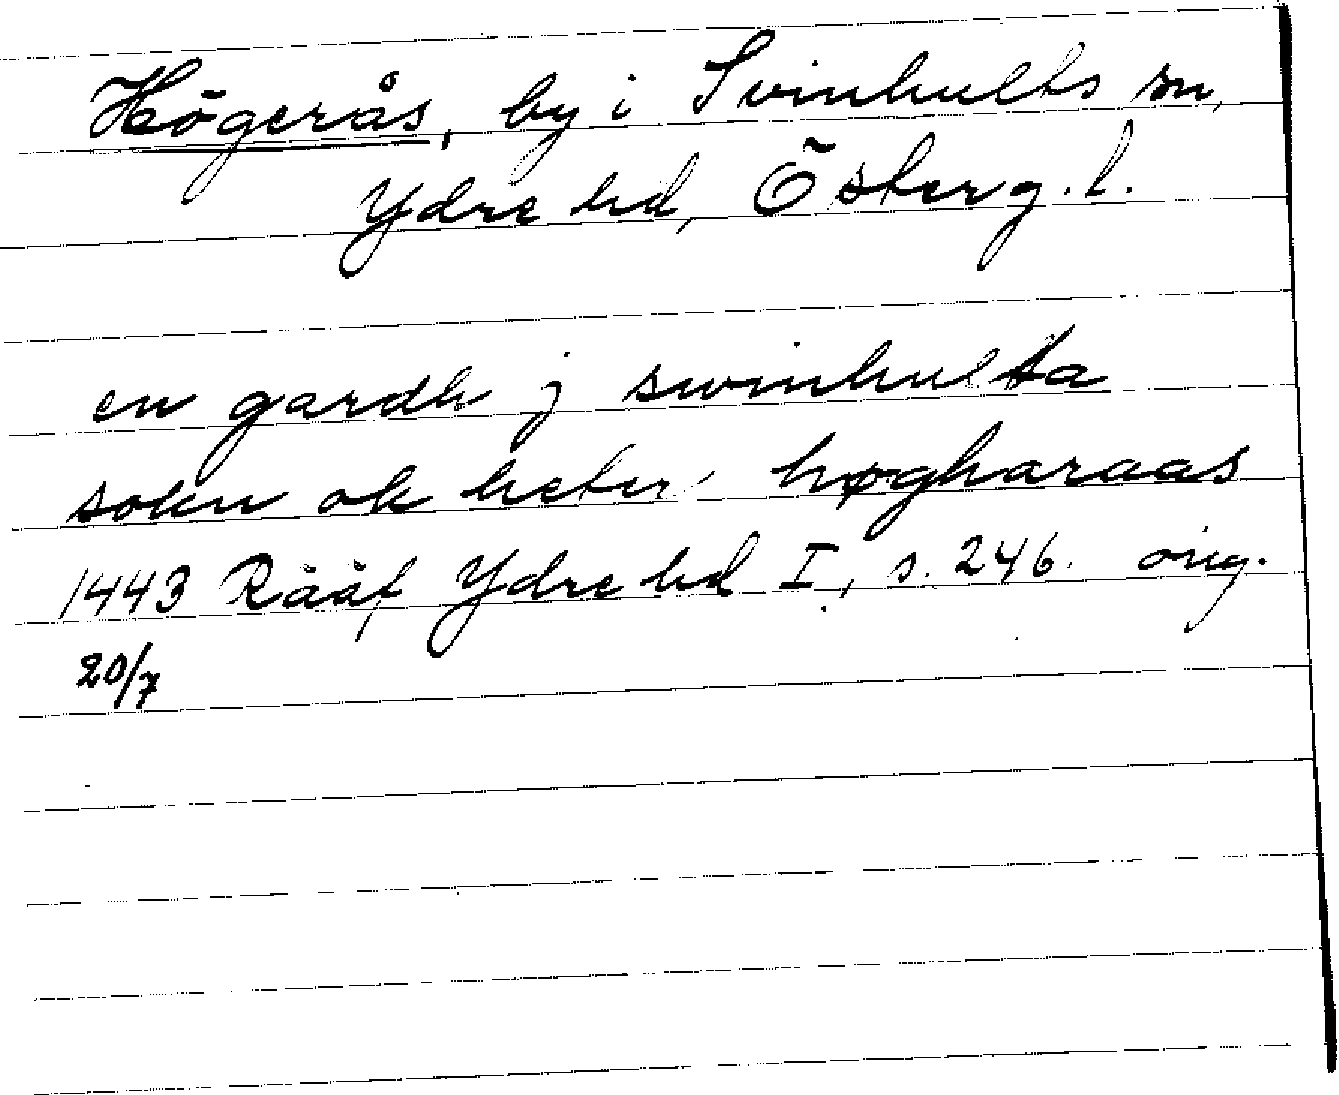 Högerås, by i Svinhults sn,
Ydre hd, Österg.l.
en gardh j swinhulta
sokn ok heter høgharaas
1443 Rääf Ydre hd I, s. 246. orig.
20/7